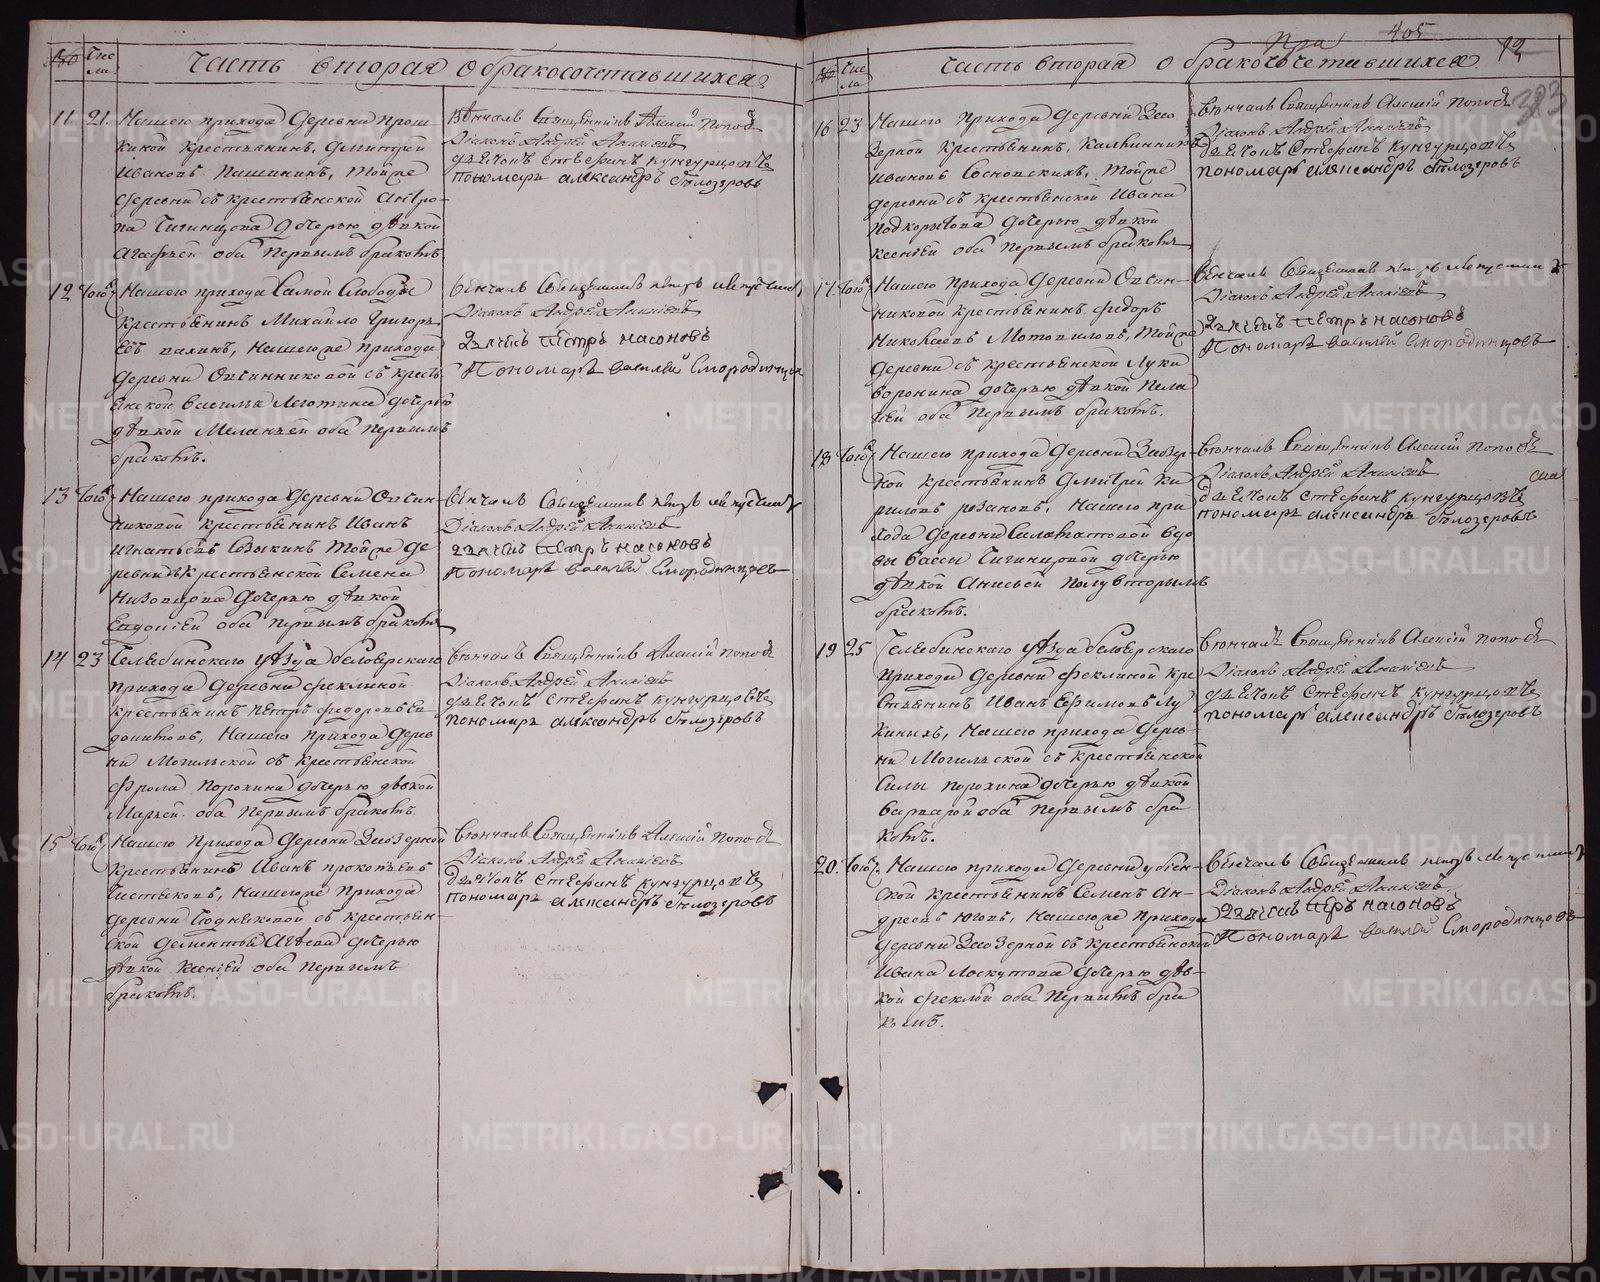 № Чис
ла
Часть вторая о бракосочетавшихся
11. 21. Нашего прихода деревни Прош
киной крестьянинъ, Дмитрей
Ивановъ Пашининъ, тойже
деревни съ крестьянской Антро
па дочерью дѣвкой
Агафьей оба первымъ бракомъ
Вѣнчалъ Священникъ Алексій Поповъ
Діаконъ Андрей Ананьевъ
дьячокъ Стефанъ Кунгурцовъ
пономарь Александръ Бѣлозеровъ
12 того Нашего прихода самой слободы
крестьянинъ Михайло Григорь
евъ нашегоже прихода
деревни Овчинниковой съ кресть
янской Василья Леготина дочерью
дѣвкой Меланьей оба первымъ
бракомъ.
вѣнчалъ Священникъ Петръ
Діаконъ Андрей Ананьевъ
дьячекъ Петръ Насоновъ
Пономарь Василей Смородинцовъ
13 того Нашего прихода деревни Овчин
никовой крестьянинъ Иванъ
Игнатьевъ тойже де
ревни съ крестьянской Семена
Низовцова дочерью дѣвкой
Евдокіей оба первымъ бракомъ
вѣнчалъ Священникъ Петръ
Діаконъ Андрей Ананьевъ
дьячекъ Петръ Насоновъ
Пономарь Василей Смородинцовъ
14 23 Челябинскаго уѣзда Белоярскаго
прихода деревни Феклиной
крестьянинъ Петръ Федоровъ Ев
докимовъ, нашего прихода дерев
ни Могильской съ крестьянской
Фрола Порохина дочерью дѣвкой
Марьей оба первымъ бракомъ.
Вѣнчалъ Священникъ Алексій Поповъ
Діаконъ Андрей Ананьевъ
дьячокъ Стефанъ Кунгурцовъ
пономарь Александръ Бѣлозеровъ
15 того Нашего прихода деревни Заозерной
крестьянинъ Иванъ Прокопьевъ
Чистяковъ, нашегоже прихода
деревни съ крестьян
ской Дементья Агѣева дочерью
дѣвкой Ксеніей оба первымъ
бракомъ.
Вѣнчалъ Священникъ Алексій Поповъ
Діаконъ Андрей Ананьевъ
дьячокъ Стефанъ Кунгурцовъ
пономарь Александръ Бѣлозеровъ
405
12
№ Чис
ла
Часть вторая о бракосочетавшихся
16 23 Нашего прихода деревни Зао
зерной крестьянинъ,
Ивановъ Сосновскихъ, тойже
деревни съ крестьянской Ивана
Подкорытова дочерью дѣвкой
Ксеніей оба первымъ бракомъ
вѣнчалъ Священникъ Алексій Поповъ
Діаконъ Андрей Ананьевъ
дьячокъ Стефанъ Кунгурцовъ
пономарь Александръ Бѣлозеровъ
17. того Нашего прихода деревни Овчин
никовой крестьянинъ Федоръ
Николаевъ Мотовиловъ, тойже
деревни съ крестьянской Луки
Воронина дочерью дѣвкой Пела
геей оба первымъ бракомъ.
вѣнчалъ Священникъ Петръ
Діаконъ Андрей Ананьевъ
дьячекъ Петръ Насоновъ
Пономарь Василей Смородинцовъ
18 того Нашего прихода деревни Заозер
ной крестьянинъ Дмитрей Ки
риловъ Резановъ, нашего при
хода деревни вдо
вы Вассы дочерью
дѣвкой Анисьей полувторымъ
бракомъ.
Вѣнчалъ Священникъ Алексій Поповъ
Діаконъ Андрей Ананьевъ
дьячокъ Стефанъ Кунгурцовъ
пономарь Александръ Бѣлозеровъ
19 25 Челябинскаго уѣзда Белоярскаго
прихода деревни Феклиной кре
стьянинъ Иванъ Ефимовъ Лу
кинихъ, нашего прихода дерев
ни Могильской съ крестьянской
Силы Порохина дочерью дѣвкой
Варварой оба первымъ бра
комъ.
вѣнчалъ Священникъ Алексій Поповъ
Діаконъ Андрей Ананьевъ
дьячокъ Стефанъ Кунгурцовъ
пономарь Александръ Бѣлозеровъ
20. того Нашего прихода деревни
крестьянинъ Семенъ Ан
дреевъ Юговъ, нашегоже прихода
деревни Заозерной съ крестьянской
Ивана Лоскутова дочерью дѣв
кой Феклой оба первымъ бра
комъ.
вѣнчалъ Священникъ Петръ
Діаконъ Андрей Ананьевъ
дьячекъ Петръ Насоновъ
Пономарь Василей Смородинцовъ
METRIKI.GASO-URAL.RU